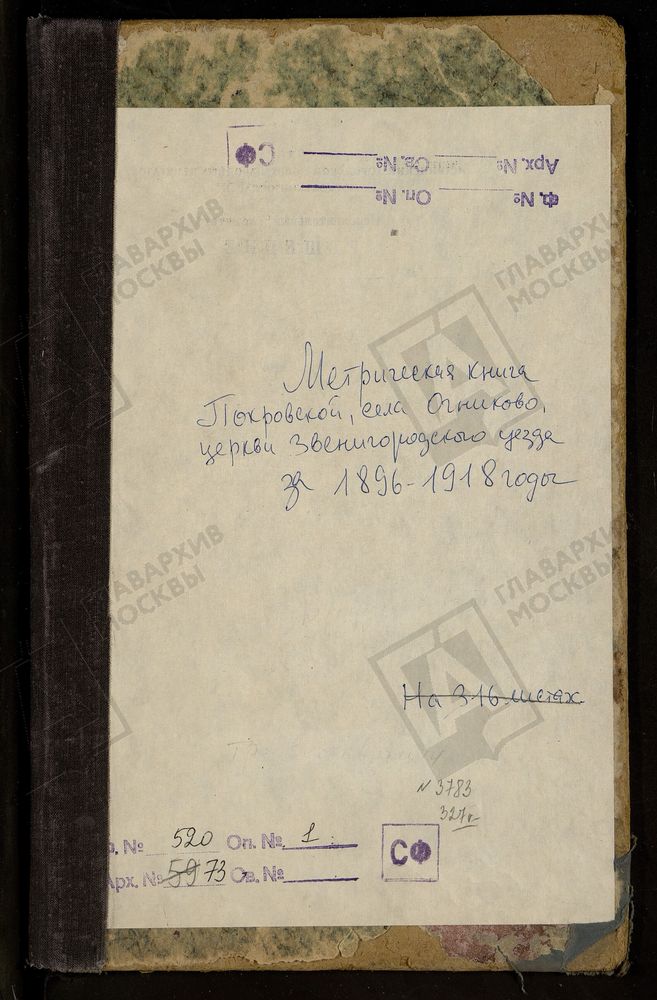 СФ
Арх. № Св. №
Ф. № Оп. №
Метрическая книга
Покровской, села Огниково,
церкви Звенигородского уезда
за 1896-1918 годы
На 316 листах.
N 3783
327 л
Ф. № 520 Оп. № 1
Арх. № 59 73 Св. №
СФ
ГЛАВАРХИВ
МОСКВЫ
ГЛАВАРХИВ
МОСКВЫ
ГЛАВАРХИВ
МОСКВЫ
ГЛАВАРХИВ
МОСКВЫ